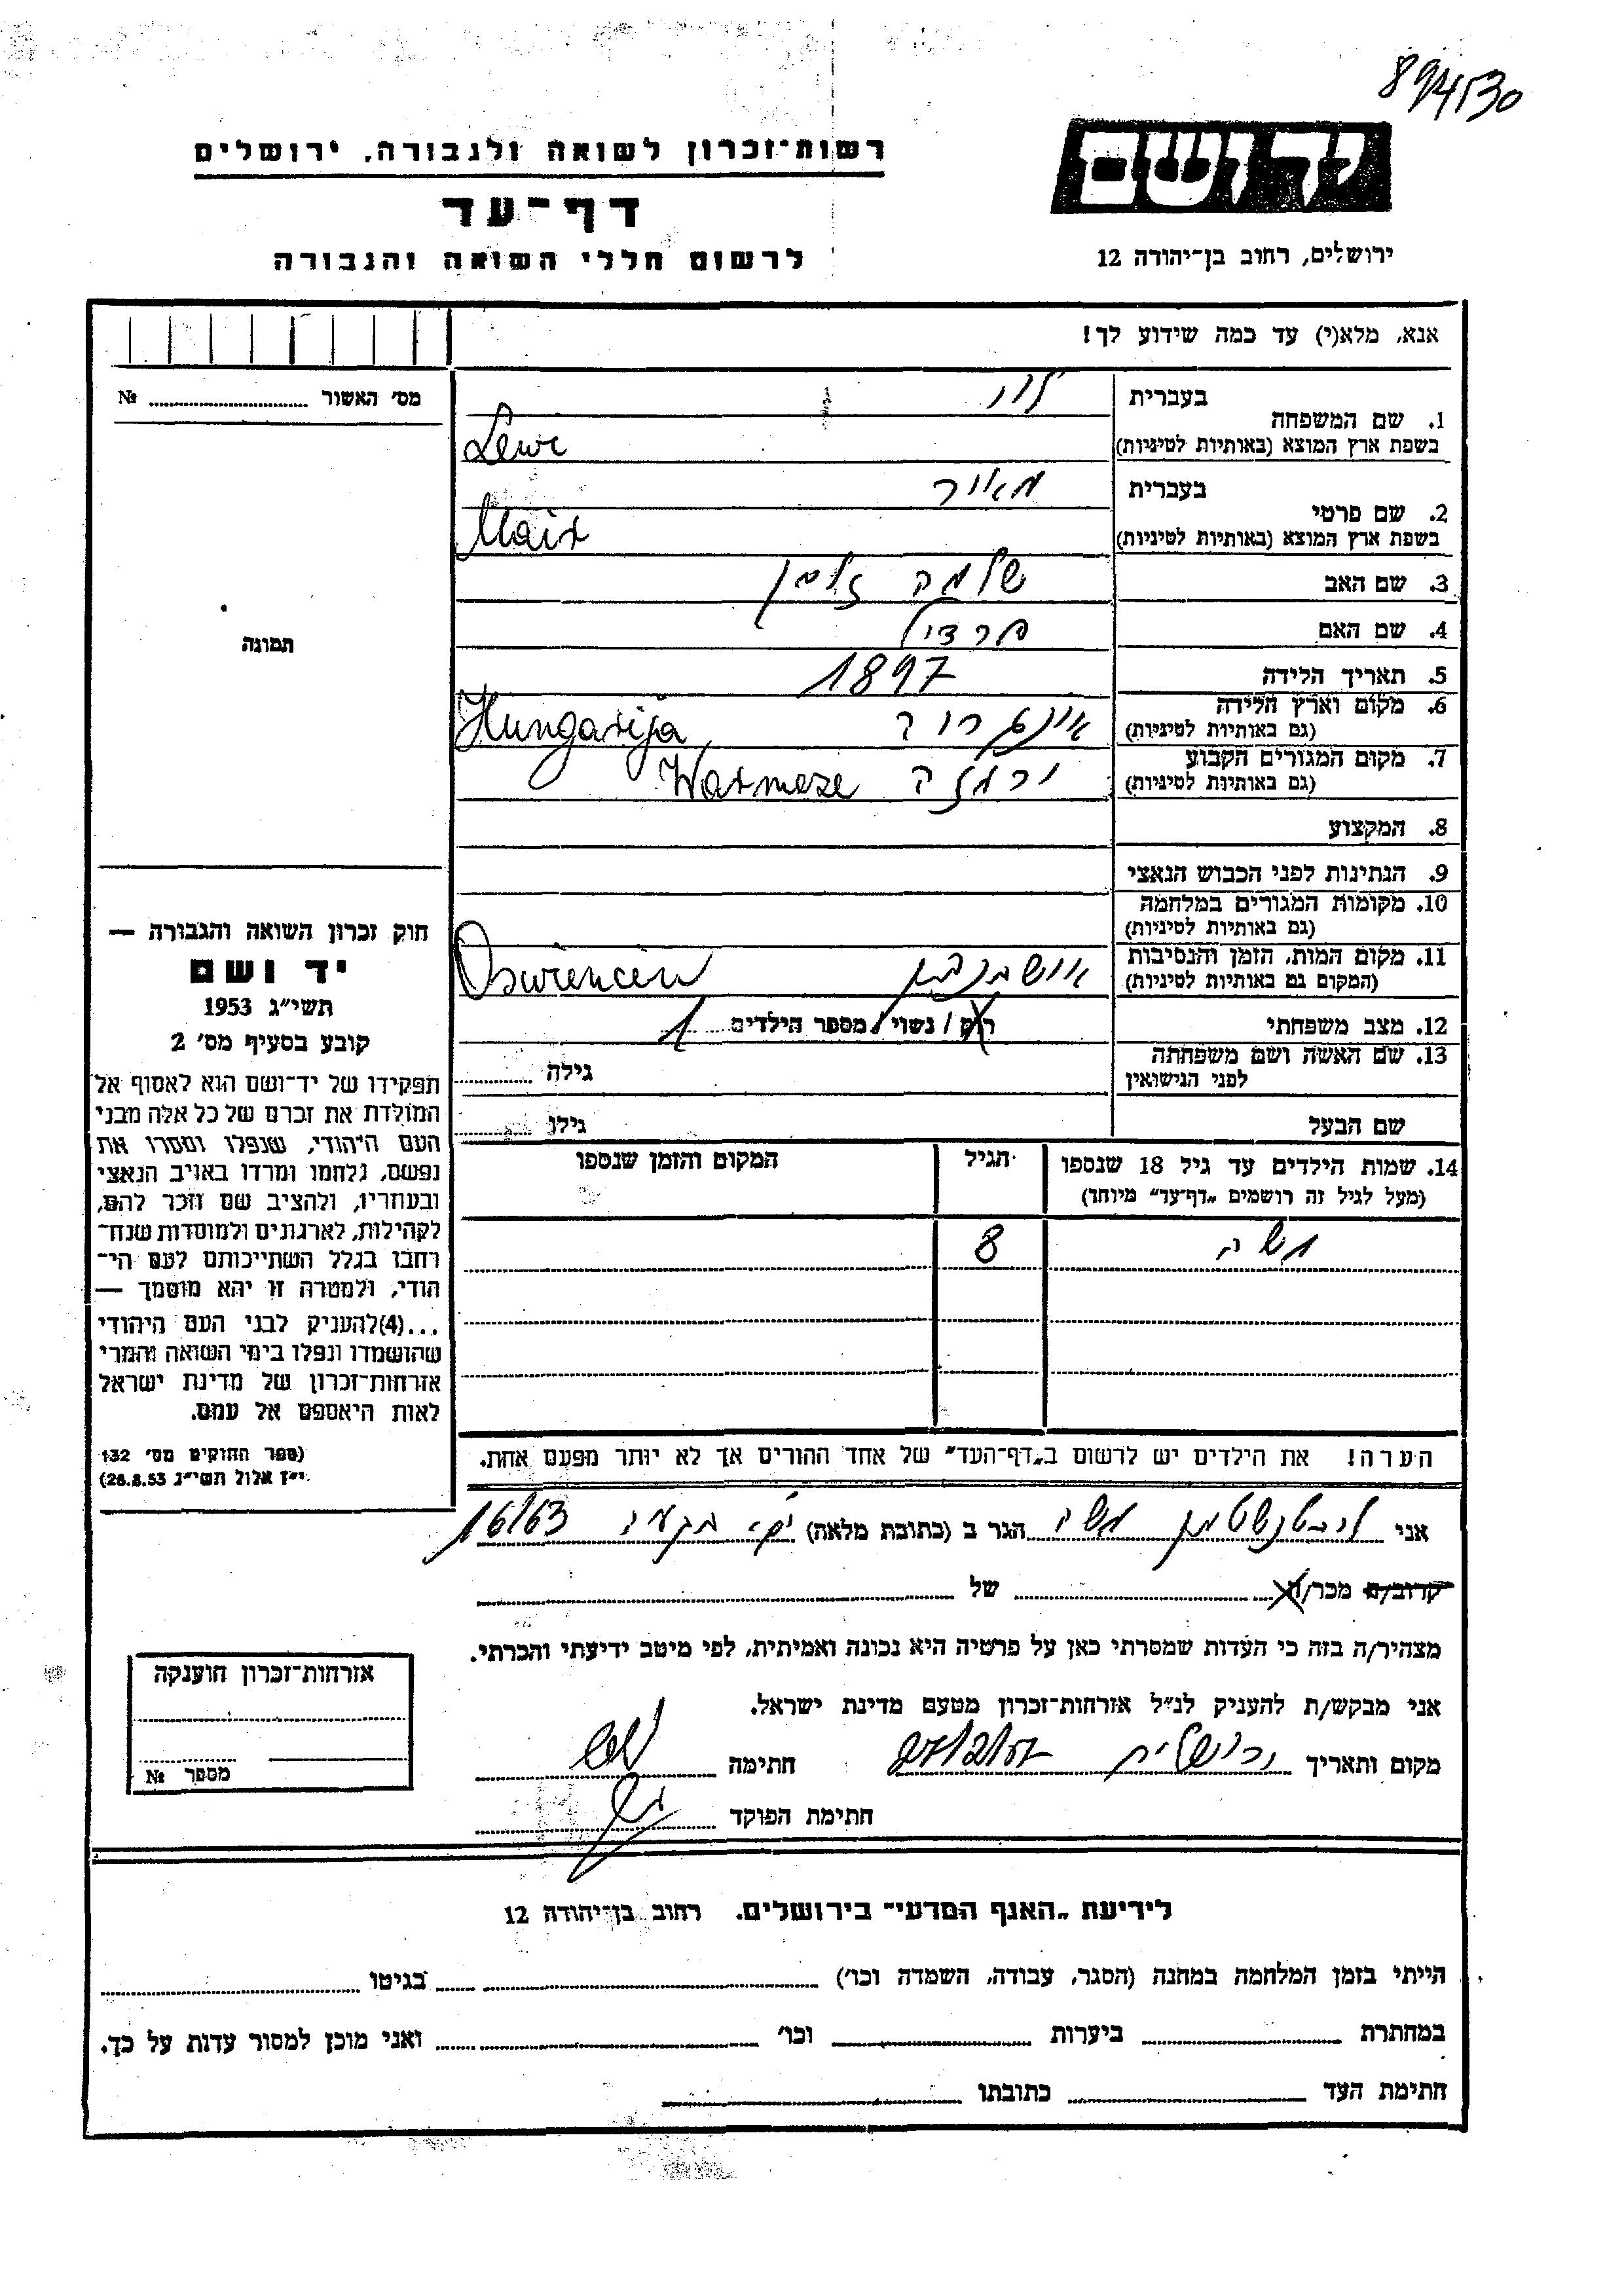 894530
יד ושם
רשות־זכרון לשואה ולגבורה, ירושלים
דף־עד
לרשום חללי השואה והגבורה
ירושלים, רחוב בן־יהודה 12
אנא, מלא(י) עד כמה שידוע לך!
מס׳ האשור ........ №
תמונה
חוק זכרון השואה והגבורה —
יד ושם
תשי״ג 1953
קובע בסעיף מס׳ 2
תפקידו של יד־ושם הוא לאסוף אל
המולדת את זכרם של כל אלה מבני
העם היהודי, שנפלו ומסרו את
נפשם, נלחמו ומרדו באויב הנאצי
ובעוזריו, ולהציב שם וזכר להם,
לקהילות, לארגונים ולמוסדות שנח־
רחבו בגלל השתייכותם לעם הי־
הודי, ולמטרה זו יהא מוסמך —
...(4)להעניק לבני העם היהודי
שהושמדו ונפלו בימי השואה והמרי
אזרחות־זכרון של מדינת ישראל
לאות היאספם אל עמם.
(ספר החוקים מס׳ 132
י״ז אלול תשי״ג 28.8.53)
בעברית לוי
1. שם המשפחה
בשפת ארץ המוצא (באותיות לטיניות) Lewi
בעברית מאיר
2. שם פרטי
בשפת ארץ המוצא (באותיות לטיניות) Mair
3. שם האב שלמה זלמן
4. שם האם פרדיל
5. תאריך הלידה 1897
6. מקום וארץ הלידה
(גם באותיות לטיניות) Hungarija
7. מקום המגורים הקבוע
(גם באותיות לטיניות) ורמזה Warmeze
8. המקצוע
9. הנתינות לפני הכבוש הנאצי
10. מקומות המגורים במלחמה
(גם באותיות לטיניות)
11. מקום המות, הזמן והנסיבות
(המקום גם באותיות לטיניות) Oswiencin
12. מצב משפחתי רוק / נשוי / מספר הילדים 1
13. שם האשה ושם משפחתה
לפני הנישואין גילה
שם הבעל גילו
14. שמות הילדים עד גיל 18 שנספו הגיל המקום והזמן שנספו
(מעל לגיל זה רושמים „דף־עד״ מיוחד)
משה 8
הערה! את הילדים יש לרשום ב„דף־העד״ של אחד ההורים אך לא יותר מפעם אחת.
אני ליכטנשטיין משה הגר ב (כתובת מלאה) 16/63
קרוב/ה מכר/ה של
מצהיר/ה בזה כי העדות שמסרתי כאן על פרטיה היא נכונה ואמיתית, לפי מיטב ידיעתי והכרתי.
אני מבקש/ת להעניק לנ״ל אזרחות־זכרון מטעם מדינת ישראל.
מקום ותאריך ירושלים חתימה
חתימת הפוקד
אזרחות־זכרון הוענקה
מספר №
לידיעת „האגף המדעי״ בירושלים, רחוב בן־יהודה 12
הייתי בזמן המלחמה במחנה (הסגר, עבודה, השמדה וכו׳) בגיטו
במחתרת ביערות וכו׳ ואני מוכן למסור עדות על כך.
חתימת העד כתובתו